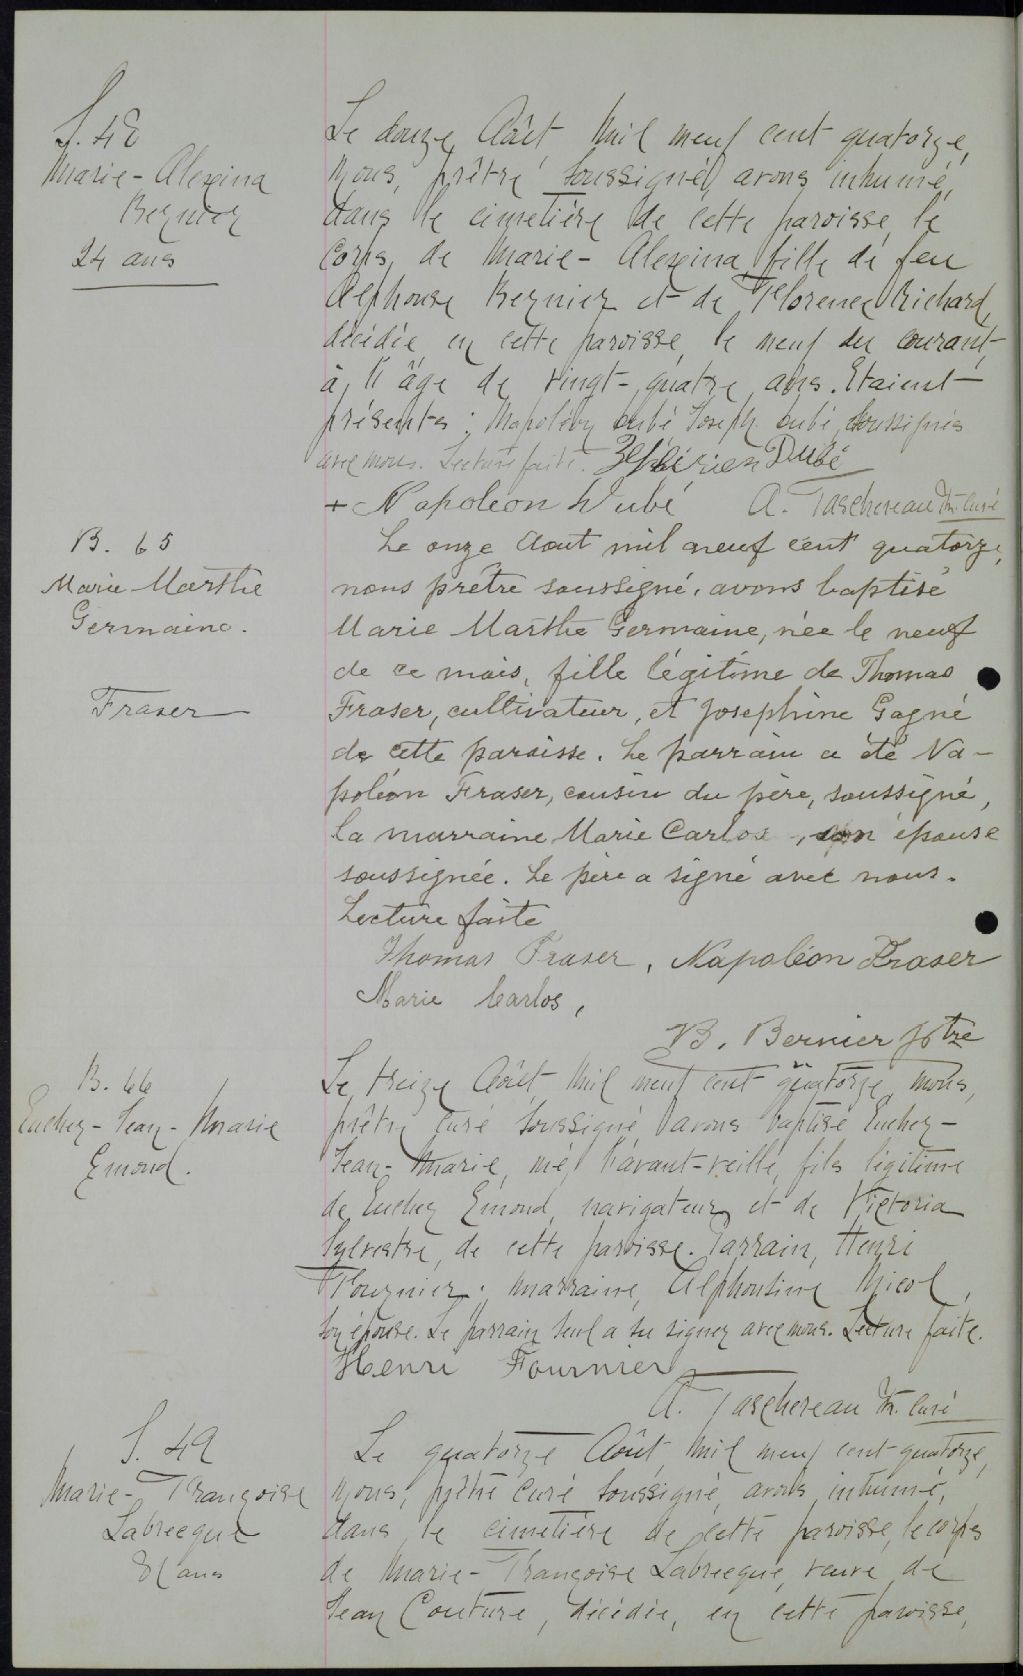 S. 48
Marie-Alexina
Bernier
24 ans
Le douze Août mil neuf cent quatorze,
nous, prêtre soussigné, avons inhumé,
dans le cimetière de cette paroisse, le
corps, de Marie-Alexina, fille de feu
Alphonse Bernier et de Florence Richard,
décédée en cette paroisse, le neuf du courant,
à l'âge de vingt-quatre ans. Etaient
présents : Napoléon Dubé Joseph Dubé, soussignés
avec nous. Lecture faite. Dubé
+ Napoléon Dubé A. Taschereau Ptr. curé
B. 65
Marie Marthe
Germaine.
Fraser
Le onze Aout mil neuf cent quatorze,
nous prêtre soussigné, avons baptisé
Marie Marthe Germaine, née le neuf
de ce mois, fille légitime de Thomas
Fraser, cultivateur, et Josephine Gagné
de cette paroisse. Le parrain a été Na-
poléon Fraser, cousin du père, soussigné,
la marraine Marie Carlos, son épouse
soussignée. Le père a signé avec nous.
Lecture faite
Thomas Fraser, Napoléon Fraser
Marie Carlos,
B. Bernier ptre
B. 66
Eucher-Jean-Marie
Emond.
Le treize Août mil neuf cent quatorze, nous,
prêtre curé soussigné avons baptisé Eucher-
Jean-Marie, né l'avant-veille, fils légitime
de Eucher Emond, navigateur, et de Victoria
Sylvestre, de cette paroisse. Parrain, Henri
Fournier ; marraine, Alphonsine Nicol,
son épouse. Le parrain seul a su signer avec nous. Lecture faite.
Henri Fournier
A. Taschereau Ptr. curé
S. 49
Marie-Françoise
Labrecque
81 ans
Le quatorze Août, mil neuf cent quatorze,
nous, prêtre curé soussigné, avons inhumé,
dans le cimetière de cette paroisse, le corps
de Marie-Françoise Labrecque, veuve de
Jean Couture, décédée, en cette paroisse,